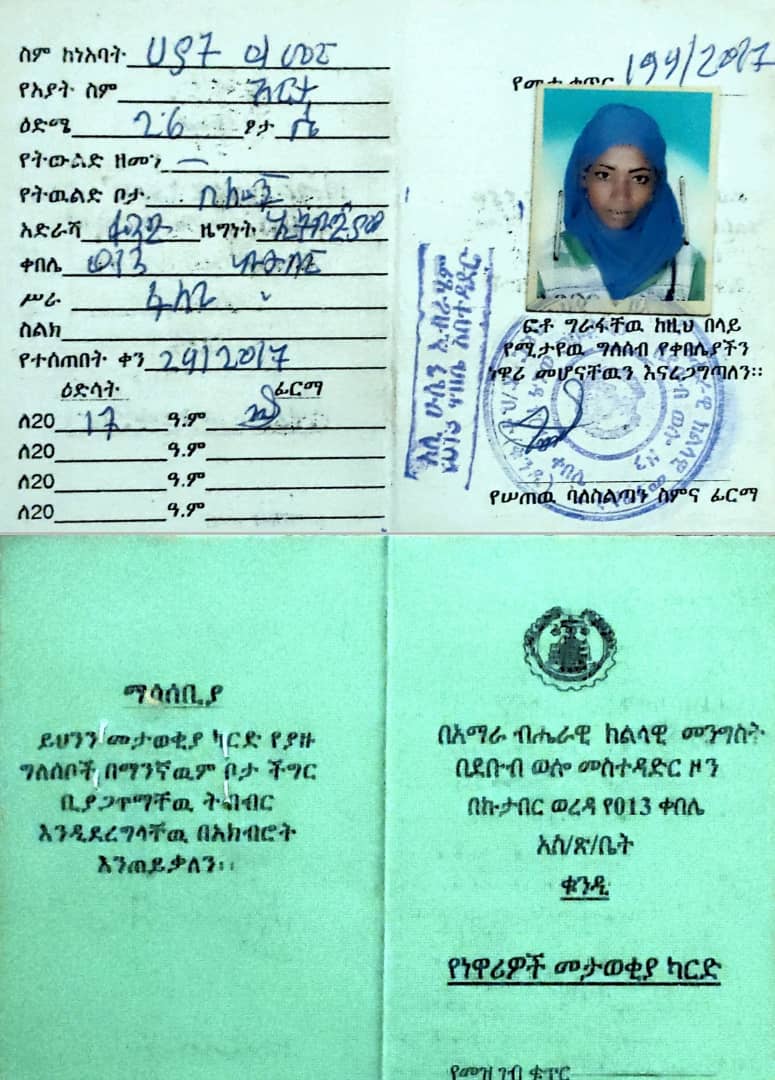 ስም ከነአባት ሀያት
የአያት ስም
ዕድሜ 26 ፆታ ሴ
የትውልድ ዘመን —
የትዉልድ ቦታ
አድራሻ ዜግነት ኢትዮጵያዊ
ቀበሌ 013
ሥራ
ስልክ
የተሰጠበት ቀን 29/2017
ዕድሳት ፊርማ
ለ20 17 ዓ.ም
ለ20 ዓ.ም
ለ20 ዓ.ም
ለ20 ዓ.ም
የመታ ቁጥር 199/2017
ፎቶ ግራፋቸዉ ከዚህ በላይ
የሚታየዉ ግለሰብ የቀበሌያችን
ነዋሪ መሆናቸዉን እናረጋግጣለን።
የሠጠዉ ባለስልጣን ስምና ፊርማ
ማሳሰቢያ
ይህንን መታወቂያ ካርድ የያዙ
ግለሰቦች በማንኛዉም ቦታ ችግር
ቢያጋጥማቸዉ ትብብር
እንዲደረግላቸዉ በአክብሮት
እንጠይቃለን።
በአማራ ብሔራዊ ክልላዊ መንግስት
በደቡብ ወሎ መስተዳድር ዞን
በኩታበር ወረዳ የ013 ቀበሌ
አስ/ጽ/ቤት
ቁንዲ
የነዋሪዎች መታወቂያ ካርድ
የመዝገብ ቁጥር